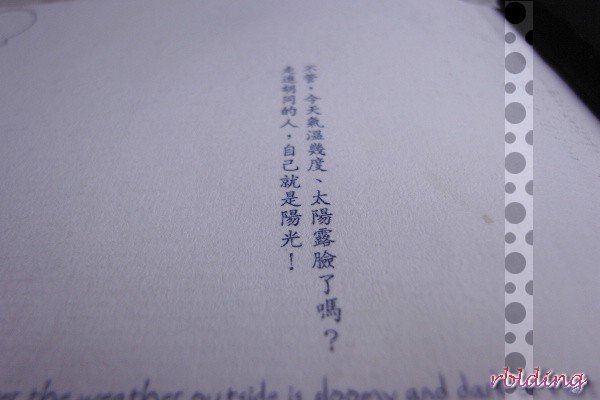 不管，今天氣溫幾度、太陽露臉了嗎？
走進胡同的人，自己就是陽光！
the weather outside is gloomy and
rblding